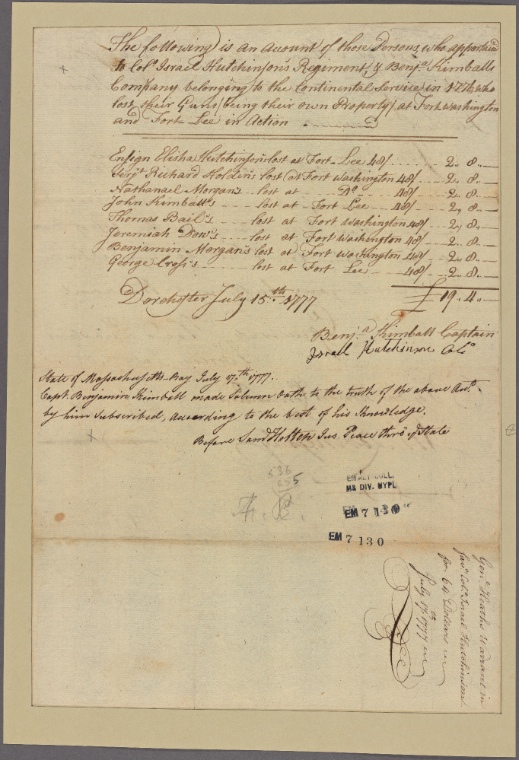 The following is an Account of those Persons, who appertain'd
to Colo. Israel Hutchinson's Regiment, & Benja. Kimballs
Company belonging to the Continental Service in 1776 who
lost their Guns (being their own Property) at Fort Washington
and Fort Lee in Action
Ensign Elisha Hutchinson lost at Fort Lee 48/ 2. 8.
Serjt. Richard Holdin's lost at Fort Washington 48/ 2. 8.
Nathanael Morgan's lost at Do. 48/ 2. 8.
John Kimball's lost at Fort Lee 48/ 2. 8.
Thomas Bail's lost at Fort Washington 48/ 2. 8.
Jeremiah Dow's lost at Fort Washington 48/ 2. 8.
Benjamin Morgan's lost at Fort Washington 48/ 2. 8.
George Cross's lost at Fort Lee 48/ 2. 8.
£ 19. 4.
Dorchester July 15.th 1777
Benj.a Kimball Captain
Israel Hutchinson Colo.
State of Massachusetts Bay July 17.th 1777.
Capt. Benjamin Kimball made Solemn Oath to the truth of the above Acct.
by him Subscribed, according to the best of his Knowledge,
Before Saml Holten Jus. Peace thro' sd State
EMMET COLL.
MS DIV. NYPL
EM 7130
EM 7130
Genl. Heath's Warrant in
favr. Colo. Israel Hutchinson
for 64 Dollars
July 19th 1777